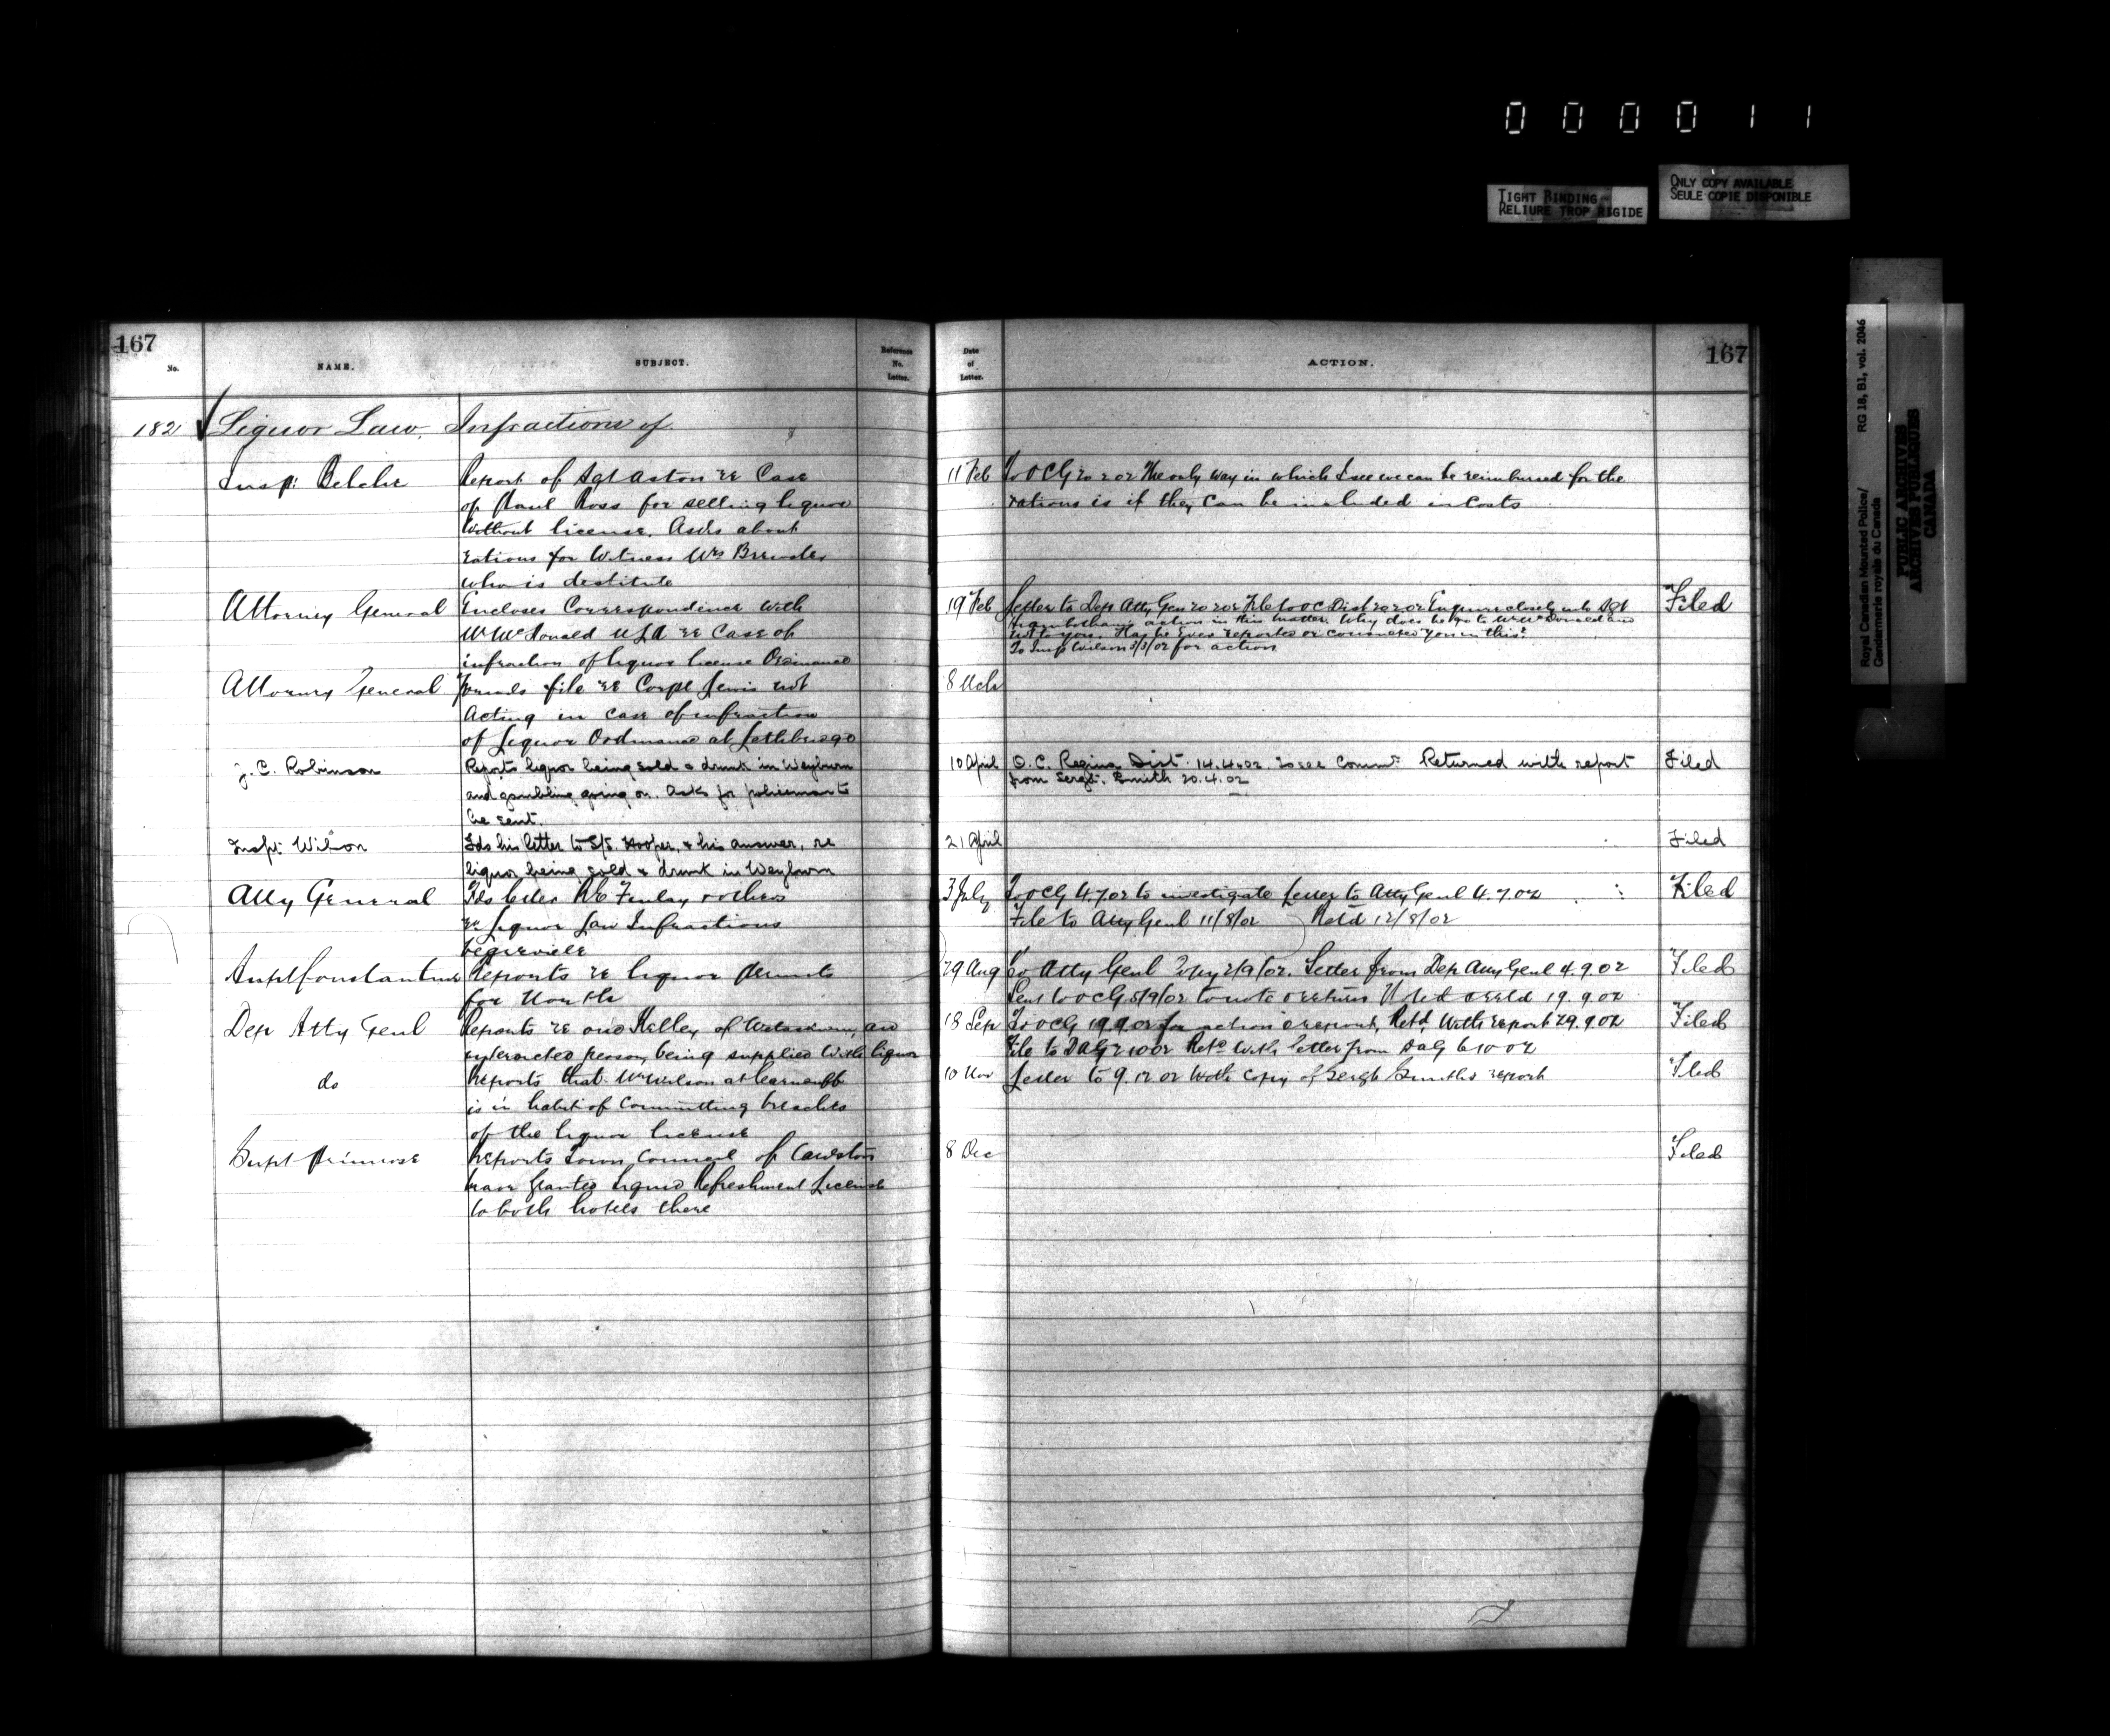 000011
TIGHT BINDING
RELIURE TROP RIGIDE
ONLY COPY AVAILABLE
SEULE COPIE DISPONIBLE
Royal Canadian Mounted Police/ RG 18, B1, vol. 2046
Gendarmerie royale du Canada
PUBLIC ARCHIVES
ARCHIVES PUBLIQUES
CANADA
167
No.
NAME.
SUBJECT.
Reference
No.
Letter.
Date
of
Letter.
ACTION.
167
182 Liquor Law, Infractions of
Insp: Belcher
Report of Sgt Aston re Case
of Paul Ross for selling liquor
without license. Asks about
rations for Witness Mrs
who is destitute
11 Feb
To OCG 20 2 02 The only way in which I see we can be reimbursed for the
rations is if they can be included in Costs
Attorney General
Encloses Correspondence with
Mr McDonald MLA re Case of
infraction of liquor license Ordinance
19 Feb
Letter to Dep Atty Gen 20 2 02 File to OC Dist 20.2.02 Enquire closely into Sgt
action in this matter. Why does he go to Mr McDonald and
not to you. Has he ever reported or you in this?
To Insp Wilson 3/3/02 for action
Filed
Attorney General
Forwards file re Corpl Lewis not
Acting in case of infraction
of Liquor Ordinance at
8 Mch
J. C. Robinson
Reports liquor being sold & drunk in Weyburn
and gambling going on. Asks for policeman to
be sent.
10 April
O. C. Regina Dist. 14.4.02 to see Commr. Returned with report
from Sergt. Smith 20.4.02
Filed
Inspr. Wilson
Fds his letter to S/S. Hooper, & his answer, re
liquor being sold & drunk in Weyburn
21 April
Filed
Atty General
Fds letter Finlay & others
re Liquor Law Infractions
Vegreville
3 July
To OCG 4.7.02 to investigate Letter to Atty Genl 4.7.02
File to Atty Genl 11/8/02 Retd 12/8/02
Filed
Supt Constantine
Reports re liquor permits
for North
29 Aug
To Atty Genl Copy 2/9/02. Letter from Dep Atty Genl 4.9.02
Sent to OCG 5/9/02 to note & return Noted & retd 19.9.02
Filed
Dep Atty Genl
Reports re one Kelley of Wetaskiwin, an
interdicted person, being supplied with liquor
18 Sep
To OCG 19.9.02 for action & report, Retd. With report 29.9.02
File to DAG 2 10 02 Retd With letter from DAG 6 10 02
Filed
do
Reports that Wm Wilson at Carnduff
is in habit of Committing breaches
of the liquor license
10 Nov
Letter to 9.12.02 With Copy of Sergt Smiths report
Filed
Supt Primrose
Reports Town Council of Cardston
have Granted Liquid Refreshment License
to both hotels there
8 Dec
Filed